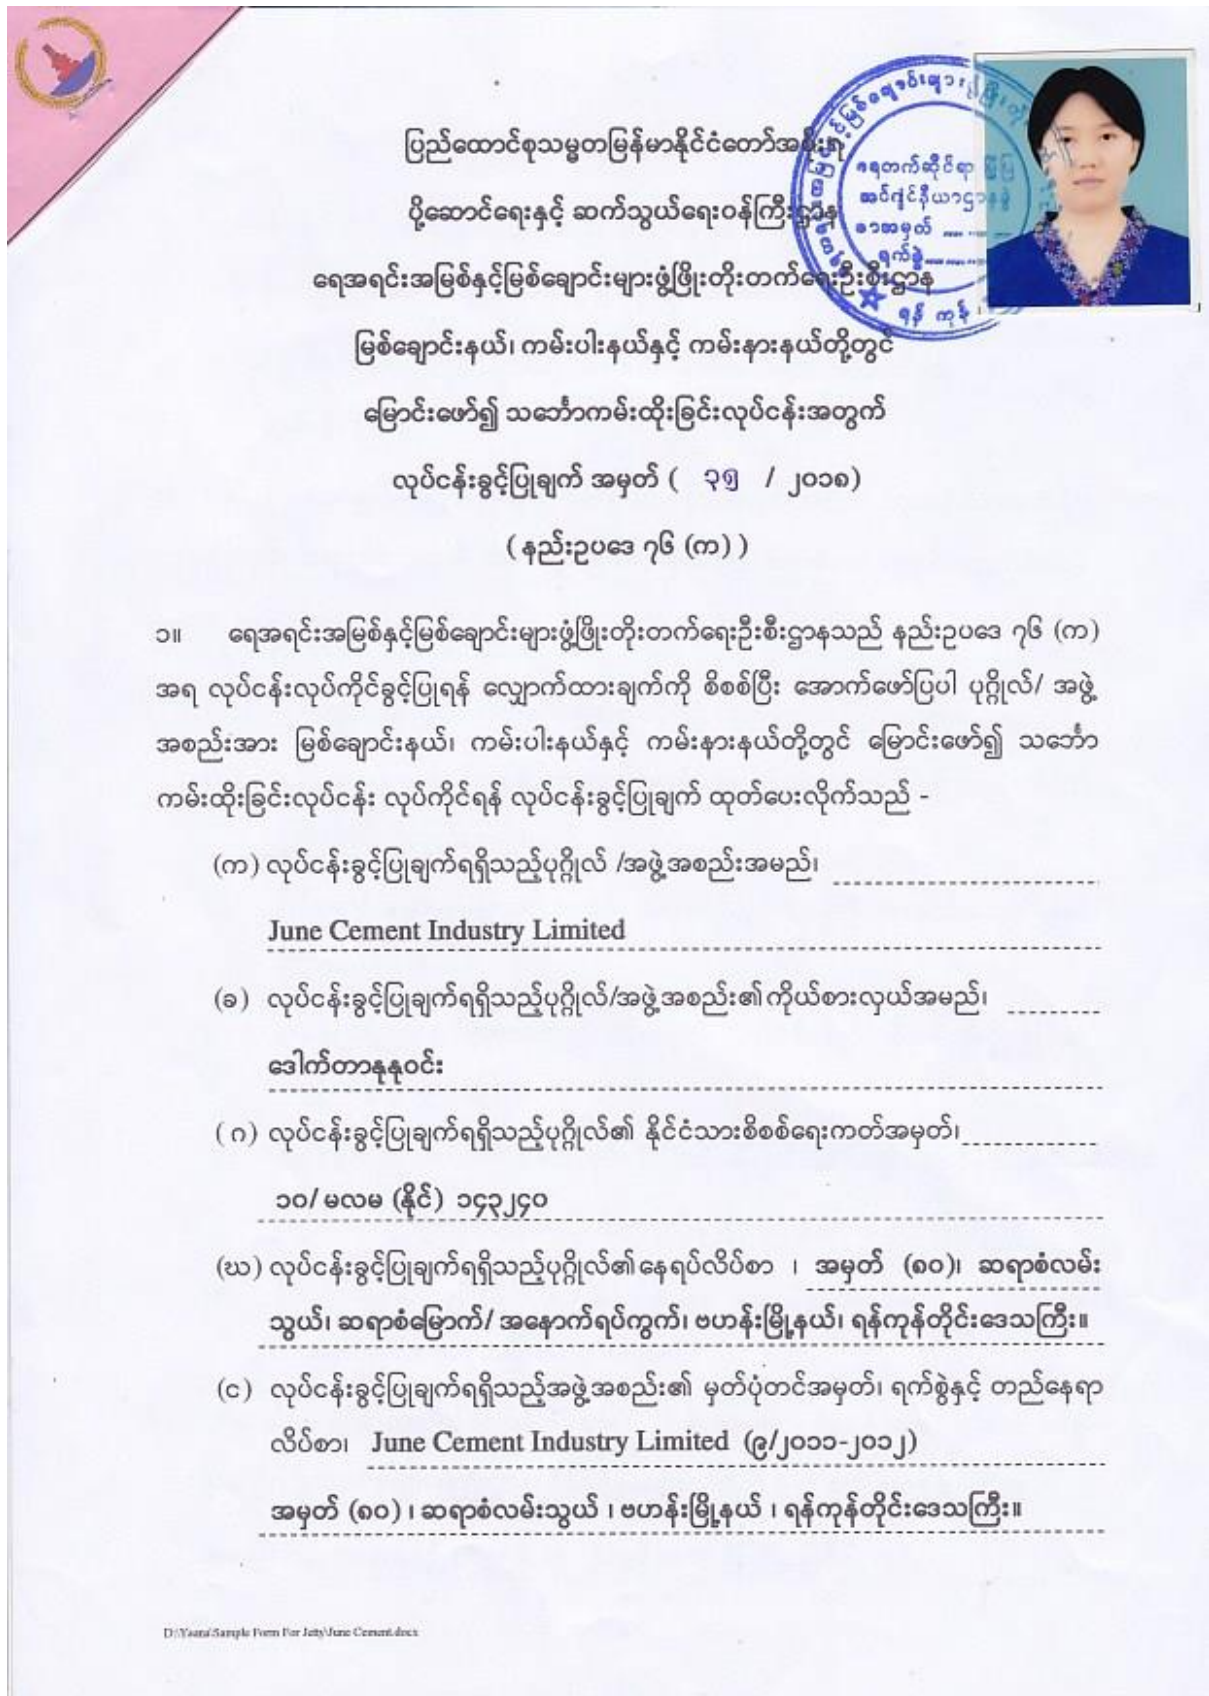 ပြည်ထောင်စုသမ္မတမြန်မာနိုင်ငံတော်အစိုးရ
ပို့ဆောင်ရေးနှင့် ဆက်သွယ်ရေးဝန်ကြီးဌာန
ရေအရင်းအမြစ်နှင့်မြစ်ချောင်းများဖွံ့ဖြိုးတိုးတက်ရေးဦးစီးဌာန
မြစ်ချောင်းနယ်၊ ကမ်းပါးနယ်နှင့် ကမ်းနားနယ်တို့တွင်
မြောင်းဖော်၍ သင်္ဘောကမ်းထိုးခြင်းလုပ်ငန်းအတွက်
လုပ်ငန်းခွင့်ပြုချက် အမှတ် ( ၃၅ / ၂၀၁၈)
( နည်းဥပဒေ ၇၆ (က) )
၁။ ရေအရင်းအမြစ်နှင့်မြစ်ချောင်းများဖွံ့ဖြိုးတိုးတက်ရေးဦးစီးဌာနသည် နည်းဥပဒေ ၇၆ (က)
အရ လုပ်ငန်းလုပ်ကိုင်ခွင့်ပြုရန် လျှောက်ထားချက်ကို စိစစ်ပြီး အောက်ဖော်ပြပါ ပုဂ္ဂိုလ်/ အဖွဲ့
အစည်းအား မြစ်ချောင်းနယ်၊ ကမ်းပါးနယ်နှင့် ကမ်းနားနယ်တို့တွင် မြောင်းဖော်၍ သင်္ဘော
ကမ်းထိုးခြင်းလုပ်ငန်း လုပ်ကိုင်ရန် လုပ်ငန်းခွင့်ပြုချက် ထုတ်ပေးလိုက်သည် -
(က) လုပ်ငန်းခွင့်ပြုချက်ရရှိသည့်ပုဂ္ဂိုလ် /အဖွဲ့အစည်းအမည်၊
June Cement Industry Limited
(ခ) လုပ်ငန်းခွင့်ပြုချက်ရရှိသည့်ပုဂ္ဂိုလ်/အဖွဲ့အစည်း၏ကိုယ်စားလှယ်အမည်၊
ဒေါက်တာနုနုဝင်း
( ဂ) လုပ်ငန်းခွင့်ပြုချက်ရရှိသည့်ပုဂ္ဂိုလ်၏ နိုင်ငံသားစိစစ်ရေးကတ်အမှတ်၊
၁၀/ မလမ (နိုင်) ၁၄၃၂၄၀
(ဃ) လုပ်ငန်းခွင့်ပြုချက်ရရှိသည့်ပုဂ္ဂိုလ်၏နေရပ်လိပ်စာ ၊ အမှတ် (၈၀)၊ ဆရာစံလမ်း
သွယ်၊ ဆရာစံမြောက်/ အနောက်ရပ်ကွက်၊ ဗဟန်းမြို့နယ်၊ ရန်ကုန်တိုင်းဒေသကြီး။
(င) လုပ်ငန်းခွင့်ပြုချက်ရရှိသည့်အဖွဲ့အစည်း၏ မှတ်ပုံတင်အမှတ်၊ ရက်စွဲနှင့် တည်နေရာ
လိပ်စာ၊ June Cement Industry Limited (၉/၂၀၁၁-၂၀၁၂)
အမှတ် (၈၀) ၊ ဆရာစံလမ်းသွယ် ၊ ဗဟန်းမြို့နယ် ၊ ရန်ကုန်တိုင်းဒေသကြီး။
D:\Yaana\Sample Form For Jetty\June Cement.docx